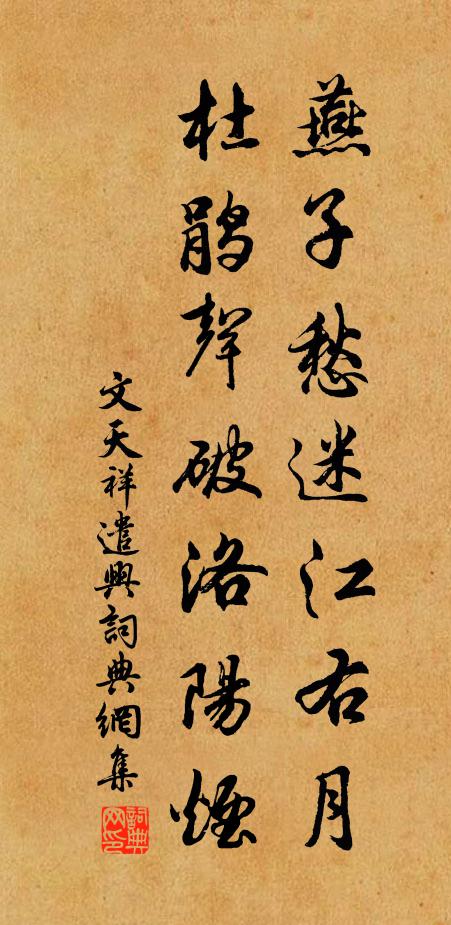 燕子愁迷江右月
杜鹃聲破洛陽煙
文天祥遣興詞典網集
詞典網印